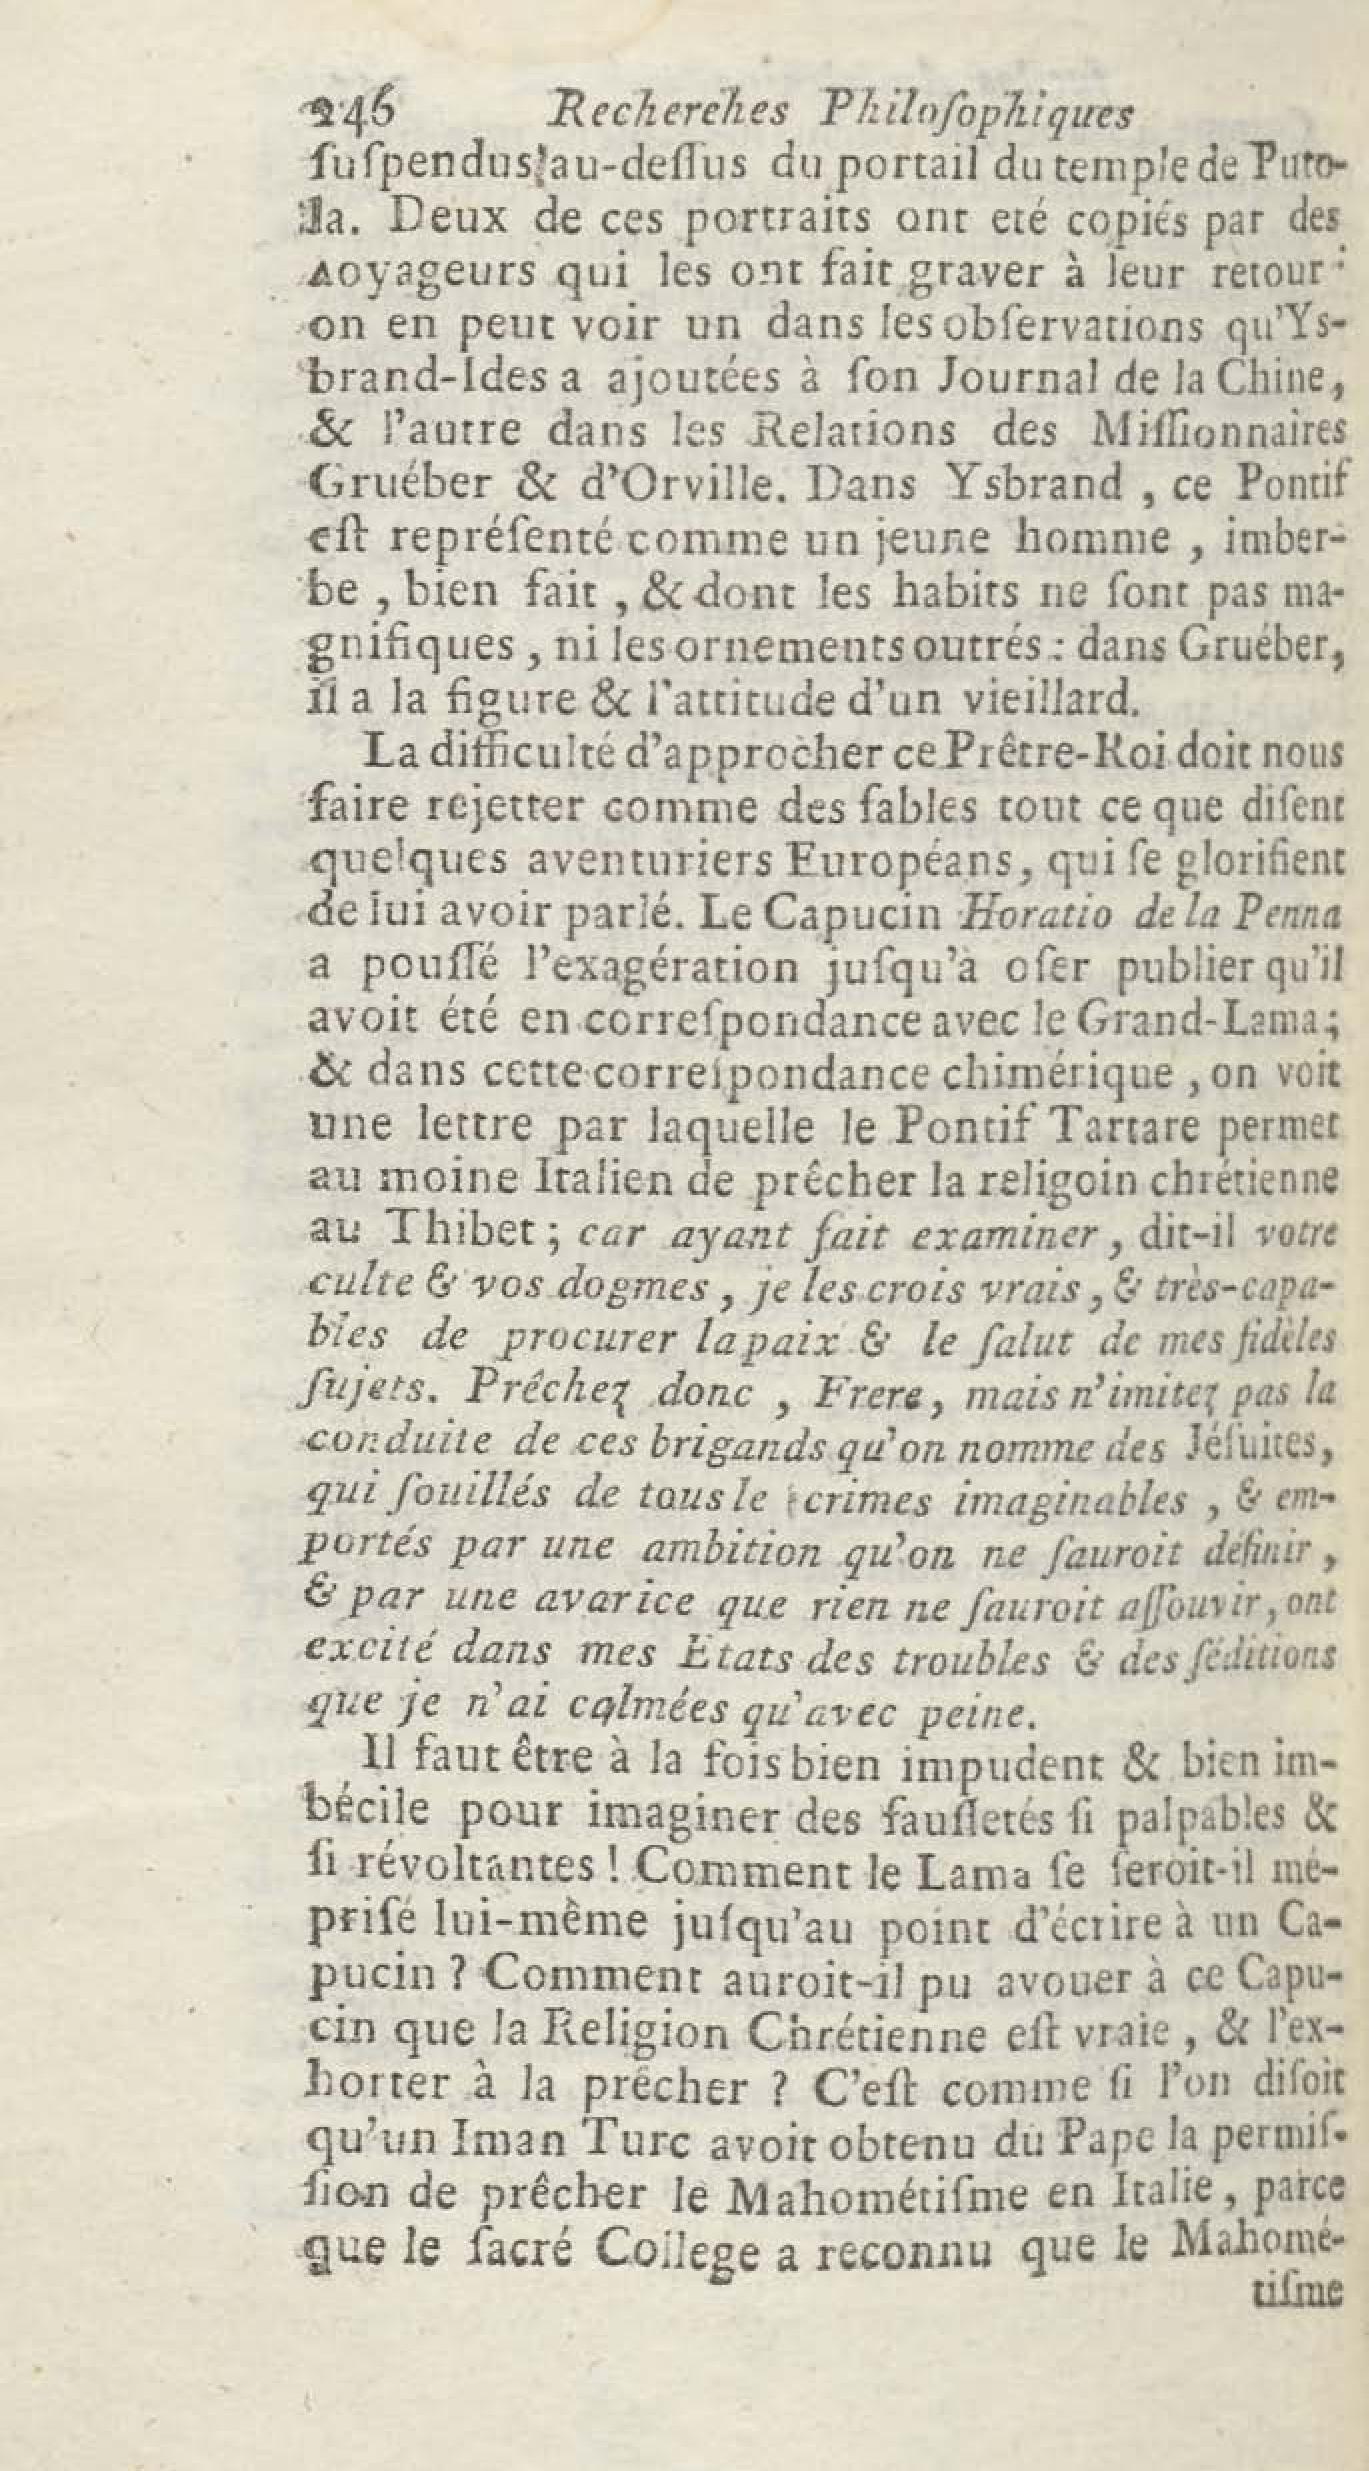 246 Recherches Philoſophiques
ſuſpendus au-deſſus du portail du temple de Puto-
la. Deux de ces portraits ont eté copiés par des
voyageurs qui les ont fait graver à leur retour :
on en peut voir un dans les obſervations qu'Ys-
brand-Ides a ajoutées à ſon Journal de la Chine,
& l'autre dans les Relations des Miſſionnaires
Gruéber & d'Orville. Dans Ysbrand , ce Pontif
eſt repréſenté comme un jeune homme , imber-
be , bien fait , & dont les habits ne ſont pas ma-
gnifiques , ni les ornements outrés : dans Gruéber,
il a la figure & l'attitude d'un vieillard.
La difficulté d'approcher ce Prêtre-Roi doit nous
faire rejetter comme des fables tout ce que diſent
quelques aventuriers Européans, qui ſe glorifient
de lui avoir parlé. Le Capucin Horatio de la Penna
a pouſſé l'exagération juſqu'à oſer publier qu'il
avoit été en correſpondance avec le Grand-Lama;
& dans cette correſpondance chimérique , on voit
une lettre par laquelle le Pontif Tartare permet
au moine Italien de prêcher la religoin chrétienne
au Thibet ; car ayant fait examiner , dit-il votre
culte & vos dogmes , je les crois vrais , & très-capa-
bles de procurer la paix & le ſalut de mes fidèles
ſujets. Prêchez donc , Frere, mais n'imitez pas la
conduite de ces brigands qu'on nomme des Jéſuites,
qui ſouillés de tous le crimes imaginables , & em-
portés par une ambition qu'on ne ſauroit définir ,
& par une avarice que rien ne ſauroit aſſouvir, ont
excité dans mes Etats des troubles & des ſéditions
que je n'ai calmées qu'avec peine.
Il faut être à la fois bien impudent & bien im-
bécile pour imaginer des fauſſetés ſi palpables &
ſi révoltantes ! Comment le Lama ſe ſeroit-il mé-
priſé lui-même juſqu'au point d'écrire à un Ca-
pucin ? Comment auroit-il pu avouer à ce Capu-
cin que la Religion Chrétienne eſt vraie , & l'ex-
horter à la prêcher ? C'eſt comme ſi l'on diſoit
qu'un Iman Turc avoit obtenu du Pape la permiſ-
ſion de prêcher le Mahométiſme en Italie , parce
que le ſacré College a reconnu que le Mahomé-
tiſme